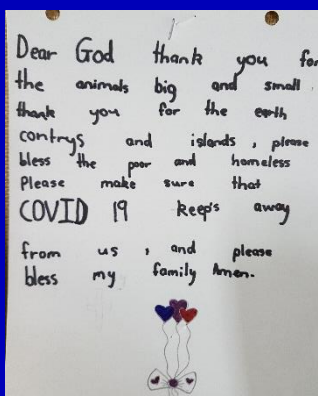 Dear God thank you for
the animals big and small
thank you for the earth
contrys and islands, please
bless the poor and homeless
Please make sure that
COVID 19 keep's away
from us, and please
bless my family Amen.